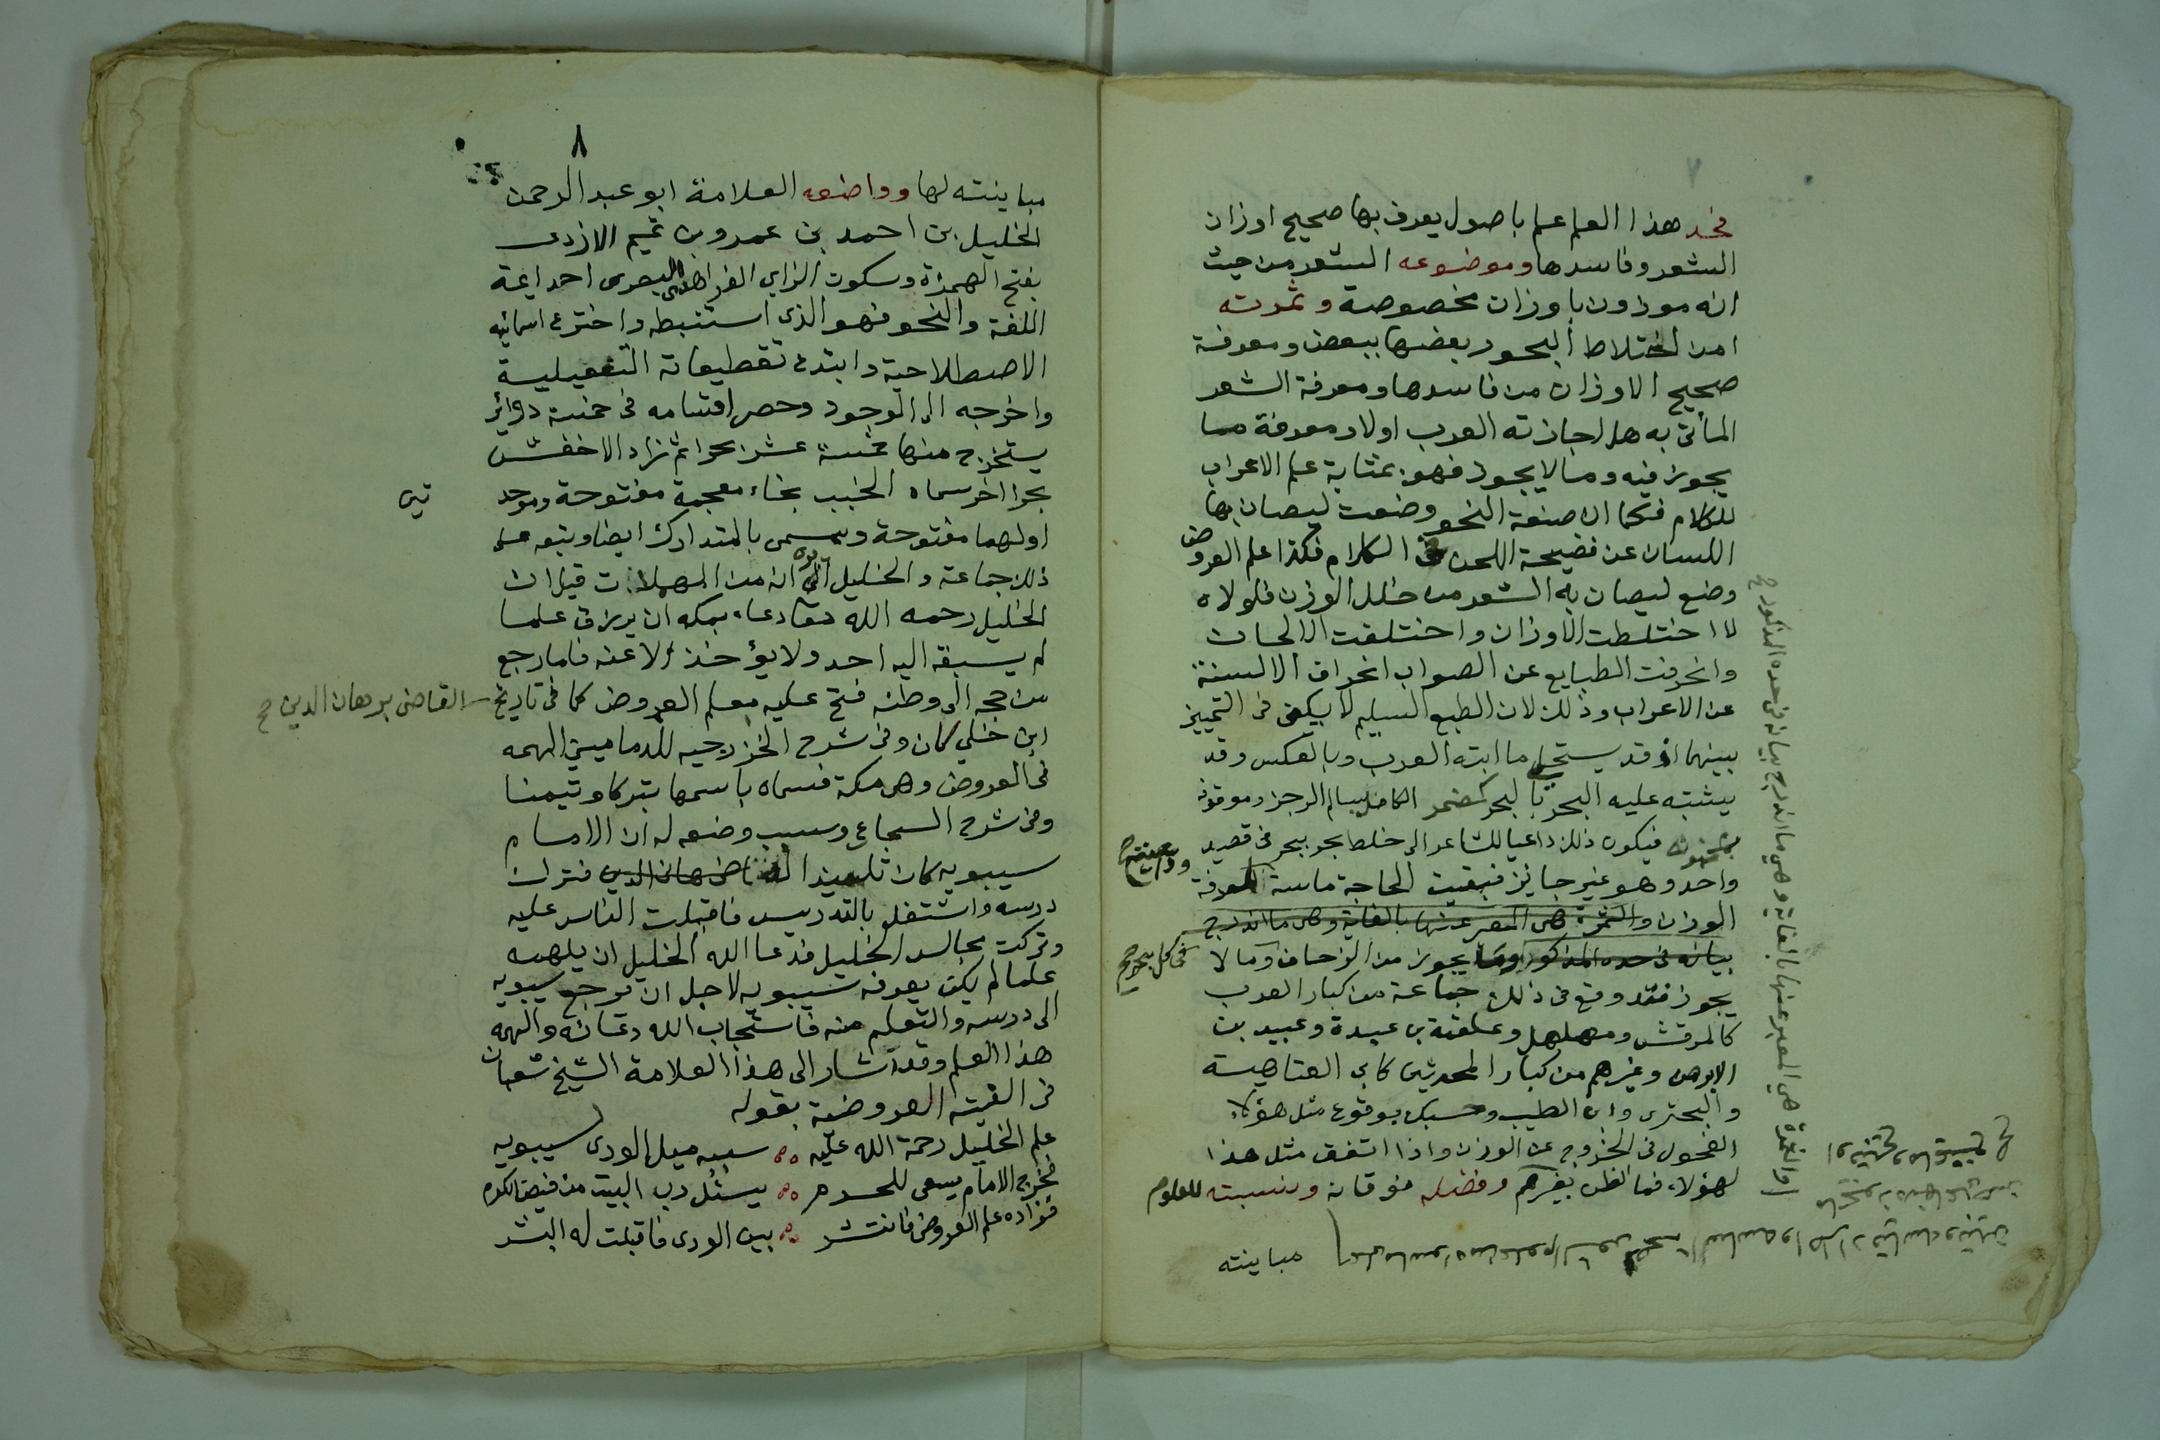 ٧
فحد هذا العلم علم باصول يعرف بها صحيح اوزان
الشعر وفاسدها وموضوعه الشعر من حيث
انه موزون باوزان مخصوصة وثمرته
امن اختلاط البحور بعضها ببعض ومعرفة
صحيح الاوزان من فاسدها ومعرفة الشعر
المأتى به هل اجازته العرب اولا ومعرفة ما
يجوز فيه وما لا يجوز فهو بمثابة علم الاعراب
للكلام فكما ان صنعة النحو وضعت ليصان بها
اللسان عن فضيحة اللحن فى الكلام فكذا علم العروض
وضع ليصان به الشعر من خلل الوزن فلولاه
لاختلطت الاوزان واختلفت الالحان
وانحرفت الطبايع عن الصواب انحراف الالسنة
عن الاعراب وذلك لان الطبع السليم لا يكفى فى التمييز
بينهما اذ قد يستحل ما ابته العرب وبالعكس وقد
يشتبه عليه البحر بالبحر كمضمر الكامل بسالم الرجز وموقوذ
فيكون ذلك داعيا للشاعر الى خلط بحر ببحر فى قصيد
واحد وهو غير جايز فبقيت الحاجة ماسة لمعرفة
الوزن والثمرة هى المعبر عنها بالغاية وهى ما اندرج
بيانه فى حده المذكور وما يجوز من الزحاف وما لا
فى كل بحر صح
يجوز فقد وقع فى ذلك جماعة من كبار العرب
كالمرقش ومهلهل وعلقمة بن عبيدة وعبيد بن
الابرص وغيرهم من كبار المحدثين كابى العتاهية
والبحترى وابى الطيب وحسبك بوقوع مثل هؤلاء
الفحول فى الخروج عن الوزن واذا اتفق مثل هذا
لهؤلاء فما الظن بغيرهم وفضله فوقانه ونسبته للعلوم
مباينته
والثمرة هي المعبر عنها بالغاية وهي ما اندرج بيانه فى حده المذكور صح
٨
مباينته لها وواضعه العلامة ابو عبد الرحمن
الخليل بن احمد بن عمرو بن تميم الازدى
بفتح الهمزة وسكون الزاي الفراهيدى البصرى احد ايمة
اللغة والنحو فهو الذى استنبطه واخترع اسمائيه
الاصطلاحية وابتدع تقطيعاته التفعيلية
واخرجه الى الوجود وحصر اقسامه فى خمسة دوائر
يستخرج منها خمسة عشر بحرا ثم زاد الاخفش
بحرا اخر سماه الخبب بخاء معجمة مفتوحة وموحد
تين
اولهما مفتوحة ويسمى بالمتدارك ايضا وتبعه على
ذلك جماعة والخليل يرى انه من المهملات قيل ان
الخليل رحمه الله تعا دعاء بمكه ان يرزق علما
لم يسبقه اليه احد ولا يؤخذ الا عنه فلما رجع
من حجه الى وطنه فتح عليه بعلم العروض كما فى تاريخ القاضى برهان الدين صح
ابن خلكان وفى شرح الخزرجيه للدماميني الهمه
فى العروض وهى مكة فسماه باسمها تبركا وتيمنا
وفى شرح السجاعى وسبب وضعه له ان الامام
سيبويه كان تلميذ الخليل فترك
درسه واشتغل بالتدريس فاقبلت الناس عليه
وتركت مجالس الخليل فدعا الله الخليل ان يلهمه
علما لم يكن يعرفه سيبويه لاجل ان يرجع سيبويه
الى درسه والتعلم منه فاستجاب الله دعائه والهمه
هذا العلم وقد اشار الى هذا العلامة الشيخ شعبان
فى الفيته العروضية بقوله
علم الخليل رحمة الله عليه سببه ميل الورى لسيبويه
فخرج الامام يسعى للحرم يسئل رب البيت من فيض الكرم
فزاده علم العروض فانتشر بين الورى فاقبلت له البشر